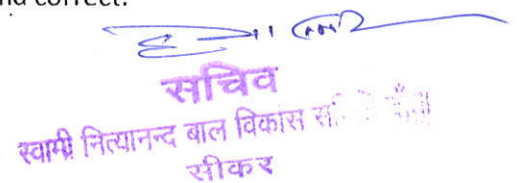 nd correct.
सचिव
स्वामी नित्यानन्द बाल विकास
सीकर